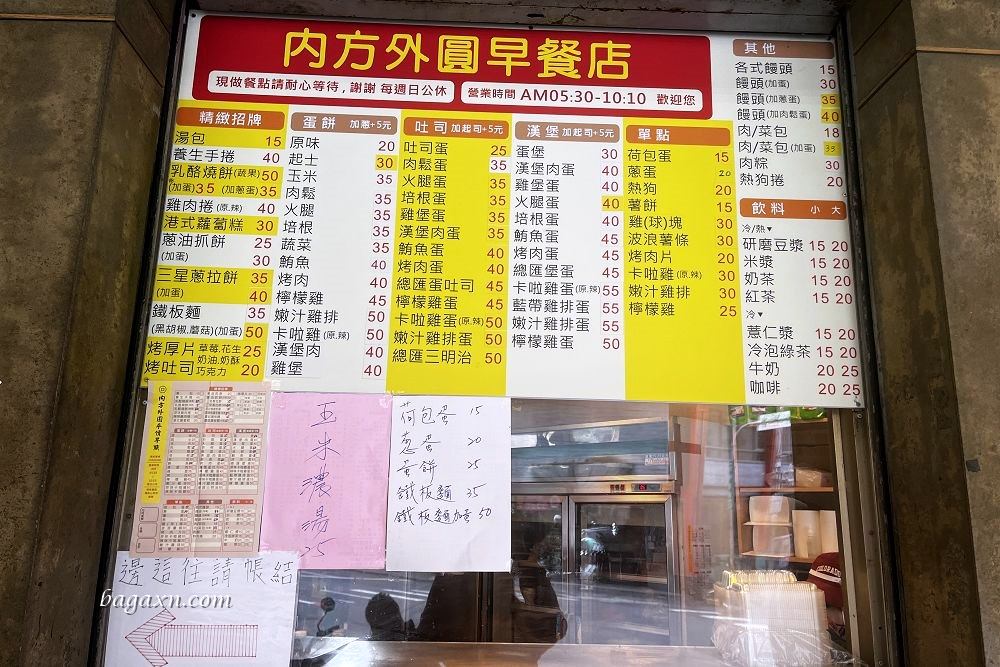 內方外圓早餐店
現做餐點請耐心等待，謝謝 每週日公休
營業時間 AM05:30-10:10 歡迎您
精緻招牌
湯包 15
養生手捲 40
乳酪燒餅(蔬果)50
(加蛋)35 (加蔥蛋)35
雞肉捲(原.辣) 40
港式蘿蔔糕 30
蔥油抓餅 25
(加蛋) 30
三星蔥拉餅 35
(加蛋) 40
鐵板麵 35
(黑胡椒.蘑菇)(加蛋)50
烤厚片 草莓.花生 25
奶油.奶酥
烤吐司 巧克力 20
蛋餅 加蔥+5元
原味 20
起士 30
玉米 35
肉鬆 35
火腿 35
培根 35
蔬菜 35
鮪魚 40
烤肉 40
檸檬雞 45
嫩汁雞排 50
卡啦雞(原.辣)50
漢堡肉 40
雞堡 40
吐司 加起司+5元
吐司蛋 25
肉鬆蛋 35
火腿蛋 35
培根蛋 35
雞堡蛋 35
漢堡肉蛋 35
鮪魚蛋 40
烤肉蛋 40
總匯蛋吐司 45
檸檬雞蛋 45
卡啦雞蛋(原.辣)50
嫩汁雞排蛋 50
總匯三明治 50
漢堡 加起司+5元
蛋堡 30
漢堡肉蛋 40
雞堡蛋 40
火腿蛋 40
培根蛋 40
鮪魚蛋 45
烤肉蛋 45
總匯堡蛋 45
卡啦雞蛋(原.辣)55
藍帶雞排蛋 55
嫩汁雞排蛋 55
檸檬雞蛋 50
單點
荷包蛋 15
蔥蛋 20
熱狗 20
薯餅 15
雞(球)塊 30
波浪薯條 30
烤肉片 20
卡啦雞(原.辣) 30
嫩汁雞排 30
檸檬雞 25
其他
各式饅頭 15
饅頭(加蛋) 30
饅頭(加蔥蛋) 35
饅頭(加肉鬆蛋) 40
肉/菜包 18
肉/菜包(加蛋) 33
肉粽 30
熱狗捲 20
飲料 小 大
冷/熱▼
研磨豆漿 15 20
米漿 15 20
奶茶 15 20
紅茶 15 20
冷▼
薏仁漿 15 20
冷泡綠茶 15 20
牛奶 20 25
咖啡 20 25
內方外圓
玉米濃湯 25
荷包蛋 15
蔥蛋 20
蛋餅 25
鐵板麵 35
鐵板麵加蛋 50
邊這往請帳結
bagaxn.com